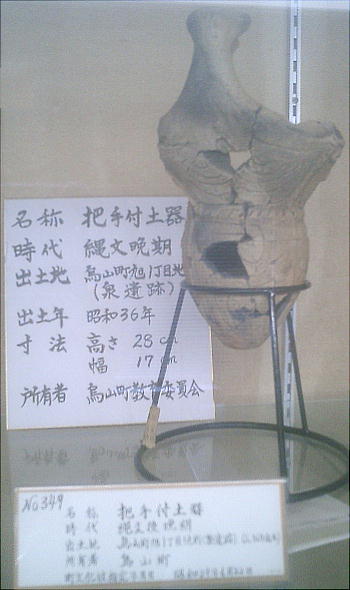 名称 把手付土器
時代 縄文晩期
出土地 烏山町旭1丁目地
(泉遺跡)
出土年 昭和36年
寸法 高さ 28cm
幅 17cm
所有者 烏山町教育委員会
No349
名称 把手付土器
時代 縄文後晩期
出土地 烏山町旭1丁目地内(泉遺跡)
所有者 烏山町
町文化財指定年月日 昭和39年